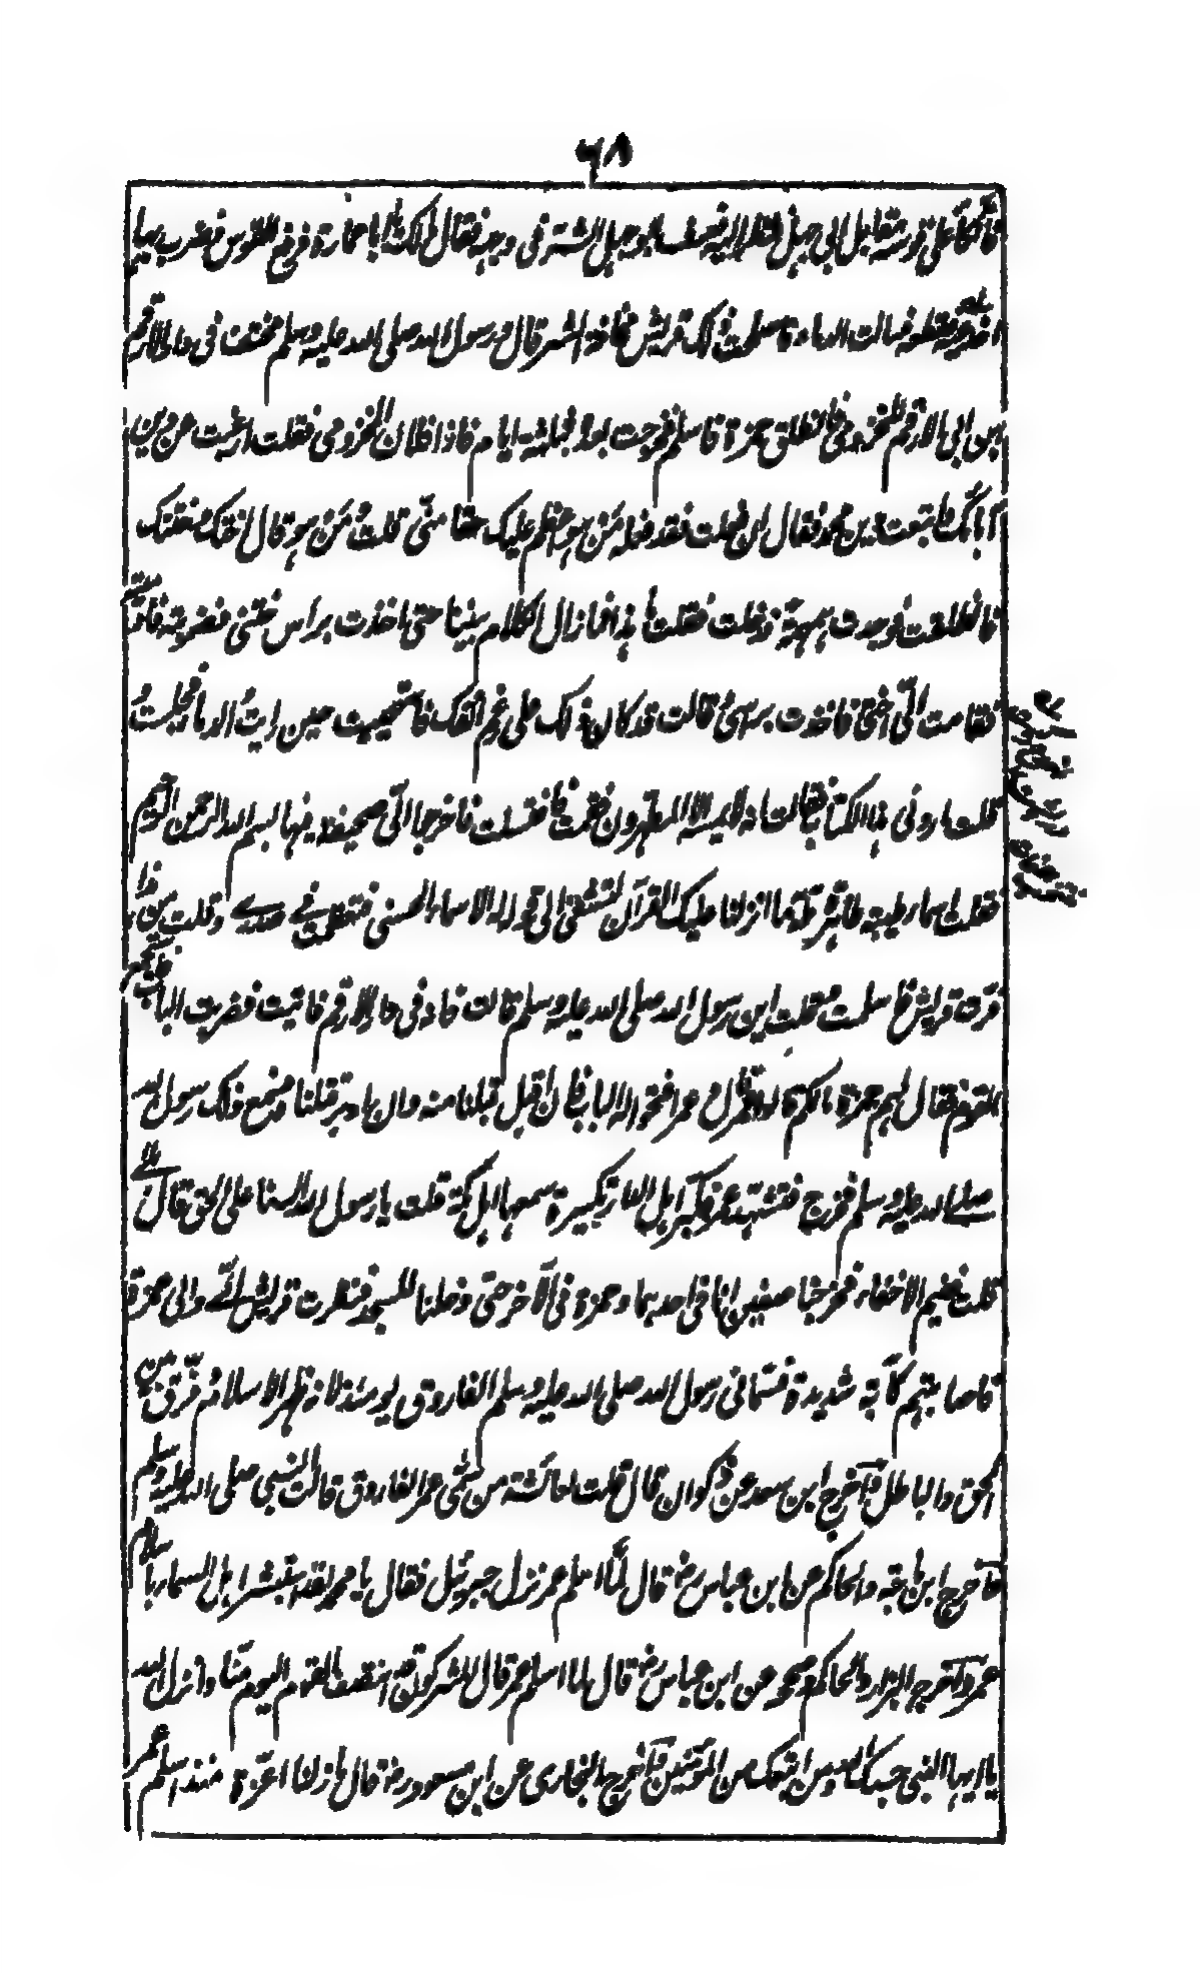 ٦٨
فاتكأ على قوسه مقابل ابى جهل فنظر اليه فعرف ابو جهل الشر فى وجهه فقال مالك يا ابا عمارة فرفع القوس فضرب بها
اخدعيه فقطعه فسالت الدماء فاصلحت ذلك قريش مخافة الشر قال ورسول الله صلى الله عليه وسلم مختف فى دار الارقم
ابن ابى الارقم المخزومى فانطلق حمزة فاسلم فخرجت بعده بثلثة ايام فاذا فلان المخزومى فقلت ارغبت عن دين
آبائك واتبعت دين محمد فقال ان فعلت فقد فعله من هو اعظم عليك حقا منى قلت ومن هو قال اختك وختنك
فانطلقت فوجدت همهمة فدخلت فقلت ما هذا فما زال الكلام بيننا حتى اخذت براس ختنى فضربته فادميته
فقامت الى اختى فاخذت براسى وقالت قد كان ذلك على رغم انفك فاستحييت حين رايت الدماء فجلست
وقلت ارونى هذا الكتاب فقالت انه لا يمسه الا المطهرون فقمت فاغتسلت فاخرجوا الى صحيفة فيها بسم الله الرحمن الرحيم
فقلت اسماء طيبة طاهرة طه ما انزلنا عليك القرآن لتشقى الى قوله له الاسماء الحسنى فتعظمت فى صدرى وقلت من هذا
فرت قريش فاسلمت وقلت اين رسول الله صلى الله عليه وسلم قالت فانه فى دار الارقم فاتيت فضربت الباب فاستجمع
القوم فقال لهم حمزة مالكم قالوا عمر قال وعمر افتحوا له الباب فان اقبل قبلنا منه وان ادبر قتلناه فسمع ذلك رسول الله
صلى الله عليه وسلم فخرج فتشهد عمر فكبر اهل الدار تكبيرة سمعها اهل مكة قلت يا رسول الله السنا على الحق قال بلى
قلت ففيم الاخفاء فخرجنا صفين انا فى احدهما وحمزة فى الآخر حتى دخلنا المسجد فنظرت قريش الى والى حمزة
فاصابتهم كآبة شديدة فسمانى رسول الله صلى الله عليه وسلم الفاروق يومئذ لانه ظهر الاسلام وفرق بين
الحق والباطل وآخرج ابن سعد عن ذكوان قال قلت لعائشة من سمى عمر الفاروق قالت النبى صلى الله عليه وسلم
وآخرج ابن ماجة والحاكم عن ابن عباس رض قال لما اسلم عمر نزل جبرئيل فقال يا محمد لقد استبشر اهل السماء باسلام
عمر وآخرج البزار والحاكم وصححه عن ابن عباس رض قال لما اسلم عمر قال المشركون قد انتصف القوم اليوم منا وانزل الله
يا ايها النبى حسبك الله ومن اتبعك من المؤمنين وآخرج البخارى عن ابن مسعود رض قال ما زلنا اعزة منذ اسلم عمر